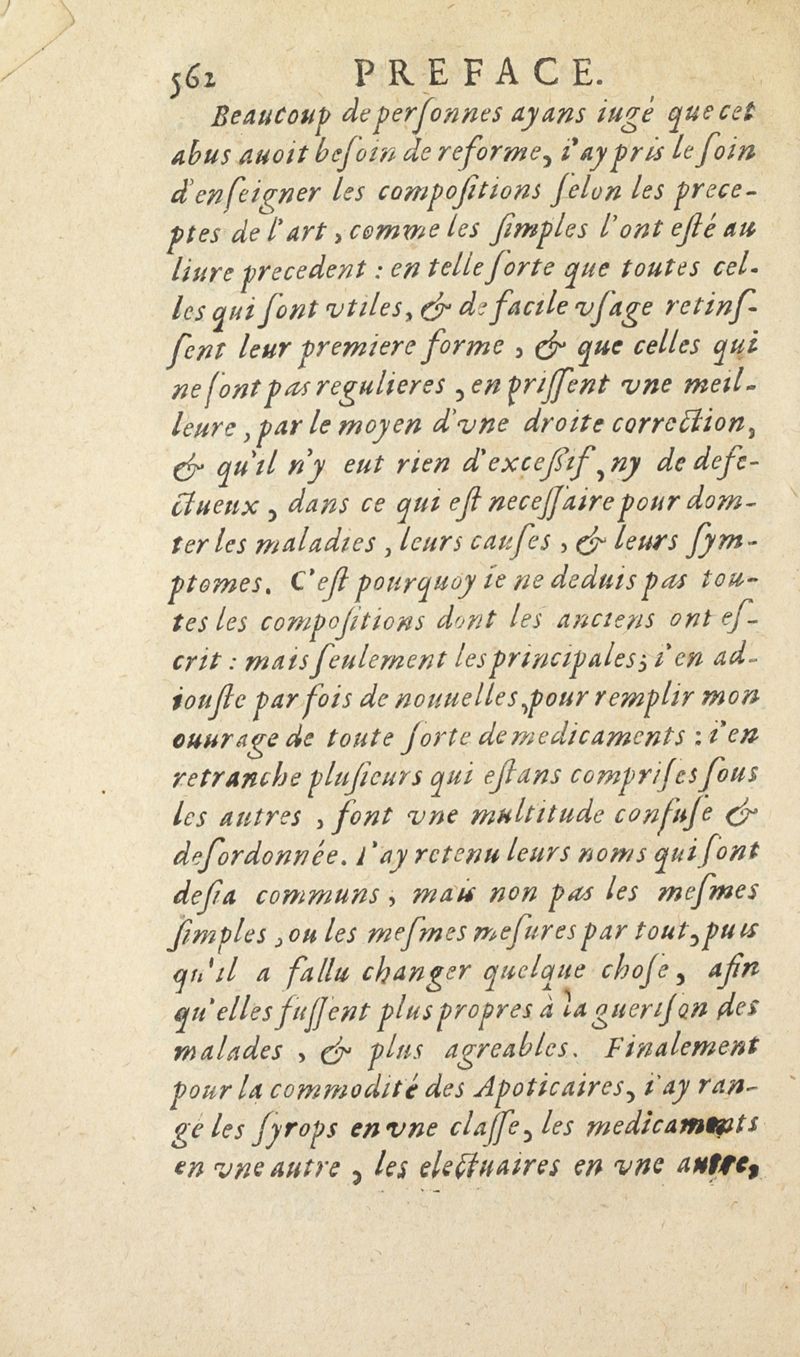 562 PREFACE.
Beaucoup de personnes ayans iugé que cet
abus auoit besoin de reforme, i'ay pris le soin
d'enseigner les compositions selon les prece-
ptes de l'art, comme les simples l'ont esté au
liure precedent : en telle sorte que toutes cel-
les qui sont vtiles, & de facile vsage retins-
sent leur premiere forme, & que celles qui
ne sont pas regulieres, en prissent vne meil-
leure, par le moyen d'vne droite correction,
& qu'il n'y eut rien d'excessif, ny de defe-
ctueux, dans ce qui est necessaire pour dom-
ter les maladies, leurs causes, & leurs sym-
ptomes. C'est pourquoy ie ne deduis pas tou-
tes les compositions dont les anciens ont es-
crit : mais seulement les principales; i'en ad-
iouste par fois de nouuelles, pour remplir mon
ouurage de toute sorte de medicaments : i'en
retranche plusieurs qui estans comprises sous
les autres, font vne multitude confuse &
desordonnée. I'ay retenu leurs noms qui sont
desia communs, mais non pas les mesmes
simples, ou les mesmes mesures par tout, puis
qu'il a fallu changer quelque chose, afin
qu'elles fussent plus propres à la guerison des
malades, & plus agreables. Finalement
pour la commodité des Apoticaires, i'ay ran-
gé les syrops en vne classe, les medicaments
en vne autre, les electuaires en vne autre,